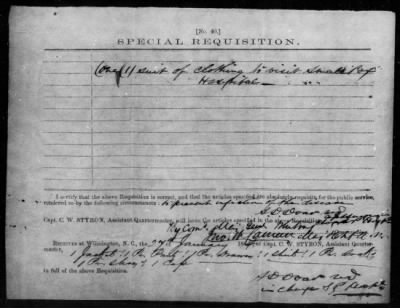 [No. 40.]
SPECIAL REQUISITION.
(One (1) suit of clothing to visit Small Pox
Hospital
I certify that the above Requisition is correct, and that the articles specified are absolutely requisite for the public service,
rendered so by the following circumstances: to prevent infection of the disease
Capt. C. W. STYRON, Assistant Quartermaster, will issue the articles specified in the above Requisition.
By Com'd Maj Genl Whiting
RECEIVED at Wilmington, N. C., the of January 186 of Capt. C. W. STYRON, Assistant Quarter-
master,
1 Jacket 1 Pr Pants 1 Pr Drawers 1 Shirt 1 Pr Socks
1 Pr Shoes 1 Cap
in full of the above Requisition.
in charge S P Hospital